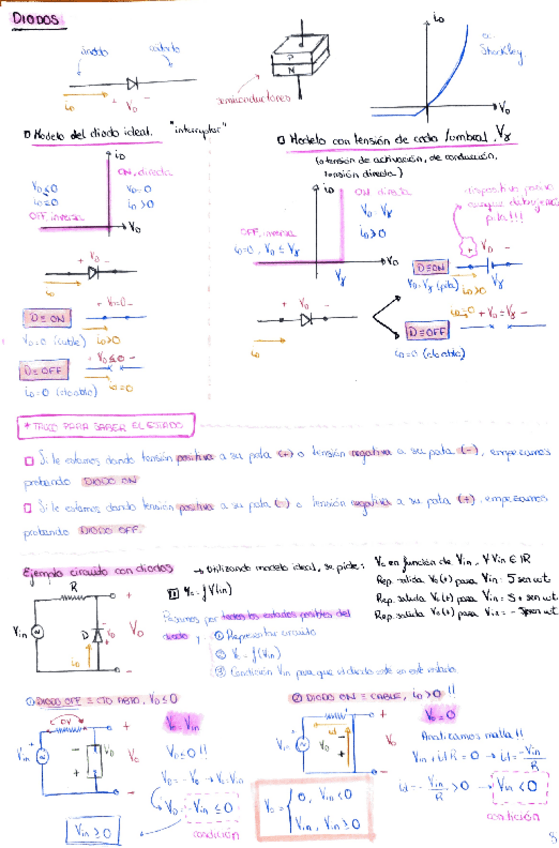 DIODOS
ánodo
cátodo
i_D + V_D -
P
N
semiconductores
i_D
ec. Shockley.
V_D
□ Modelo del diodo ideal. "interruptor"
i_D
ON, directa
V_D = 0
i_D > 0
V_D ≤ 0
i_D = 0
OFF, inversa
V_D
+ V_D -
i_D
D ≡ ON
+ V = 0 -
V_D = 0 (cable) i_D > 0
D ≡ OFF
+ V_D ≤ 0 -
i_D = 0 (cable) i_D = 0
□ Modelo con tensión de codo /umbral, Vγ
(o tensión de activación, de conducción,
tensión directa)
i_D
ON, directa
V_D = Vγ
i_D > 0
OFF, inversa
i_D = 0, V_D ≤ Vγ
V_D
Vγ
dispositivo pasivo
pila!!!
+ V_D -
D ≡ ON
V_D = Vγ (pila) i_D > 0 Vγ
+ V_D -
i_D
D ≡ OFF
i_D = 0
* TRUCO PARA SABER EL ESTADO
□ Si le estamos dando tensión positiva a su pata (+) o tensión negativa a su pata (-), empezamos
probando DIODO ON
□ Si le estamos dando tensión positiva a su pata (-) o tensión negativa a su pata (+), empezamos
probando DIODO OFF.
Ejemplo circuito con diodos → Utilizando modelo ideal, se pide: V_o en función de Vin, ∀ Vin ∈ ℝ
Rep. salida V_o(t) para Vin = 5 sen wt
Rep. salida V_o(t) para Vin = 5 + sen wt
Rep. salida V_o(t) para Vin =
R
Vin
D
V_D
i_D
+
V_o
-
1 V_o = f(Vin)
Pasamos por todos los estados posibles del
diodo y: ① Representar circuito
② V_o = f(Vin)
③ Condición Vin para que el diodo esté en este estado
① DIODO OFF ≡ CTO ABTO, V_D ≤ 0
0V
Vin
V_D
V_o
V_o = Vin
V_D ≤ 0 !!
V_D = -V_o → V_o = Vin
V_D = -Vin ≤ 0
condición
Vin ≥ 0
② DIODO ON ≡ CABLE, i_D > 0 !!
Vin
V_D
V_o
V_o = 0
Analizamos malla!!
Vin + id R = 0 → id = -Vin/R
id = -Vin/R > 0 → Vin < 0
condición
V_o = { 0, Vin < 0
Vin, Vin ≥ 0